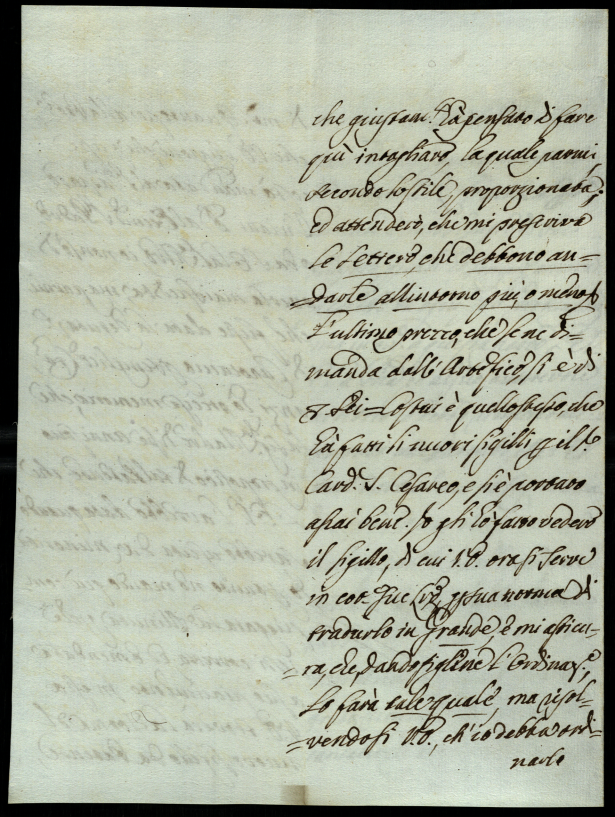 che giustam.te hà pensato di fare
quì intagliare, la quale parmi
secondo lo stile proporzionata,
ed attenderò, che mi prescriva
le Lettere, che debbono an-
=darle all'intorno più, o meno.
L'ultimo prezzo, che se ne di-
manda dall'Artefice, si è di
Sei = Costui è quello stesso, che
hà fatti li nuovi sigilli p il S.
Card. S. Cesareo, e si è portato
assai bene. Io gli hò fatto vedere
il sigillo, di cui V.P. ora si serve
in cot. Sue p sua norma di
tradurlo in Grande, e mi assicu-
=ra, che, dandosigliene l'Ordinaz.e,
Lo farà tale quale, ma risol-
=vendosi V.P., ch'io debba ordi-
narlo